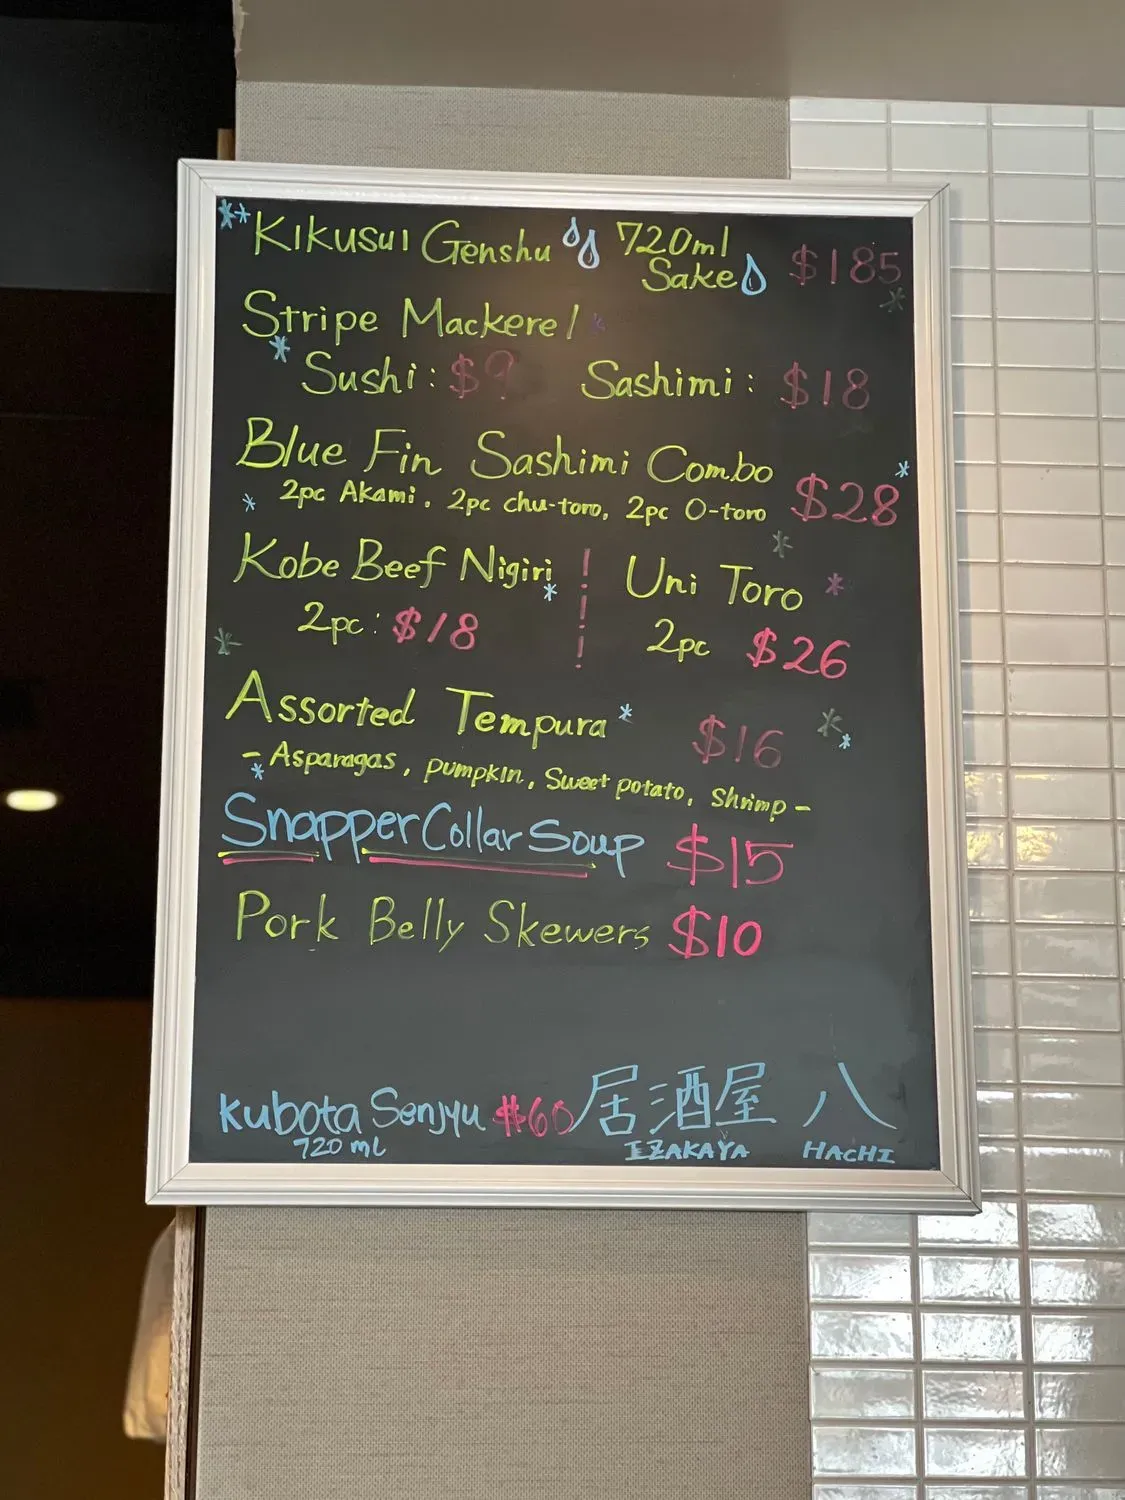 Kikusui Genshu 720ml
Sake $185
Stripe Mackerel
Sushi: $9 Sashimi: $18
Blue Fin Sashimi Combo
2pc Akami, 2pc chu-toro, 2pc O-toro $28
Kobe Beef Nigiri Uni Toro
2pc: $18 2pc $26
Assorted Tempura $16
- Asparagas, pumpkin, Sweet potato, Shrimp -
Snapper Collar Soup $15
Pork Belly Skewers $10
Kubota Senjyu $60 居酒屋 八
720 mL IZAKAYA HACHI